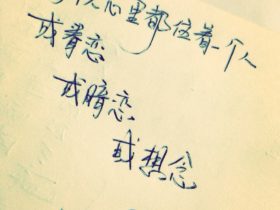 心里都住着一个人
或眷恋
或暗恋
或想念